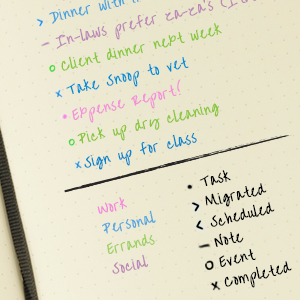 > Dinner with
– In-laws prefer za-za's (I
o Client dinner next week
x Take Snoop to vet
• Expense Report!
o Pick up dry cleaning
x Sign up for class
Work
Personal
Errands
Social
• Task
> Migrated
< Scheduled
– Note
o Event
x Completed